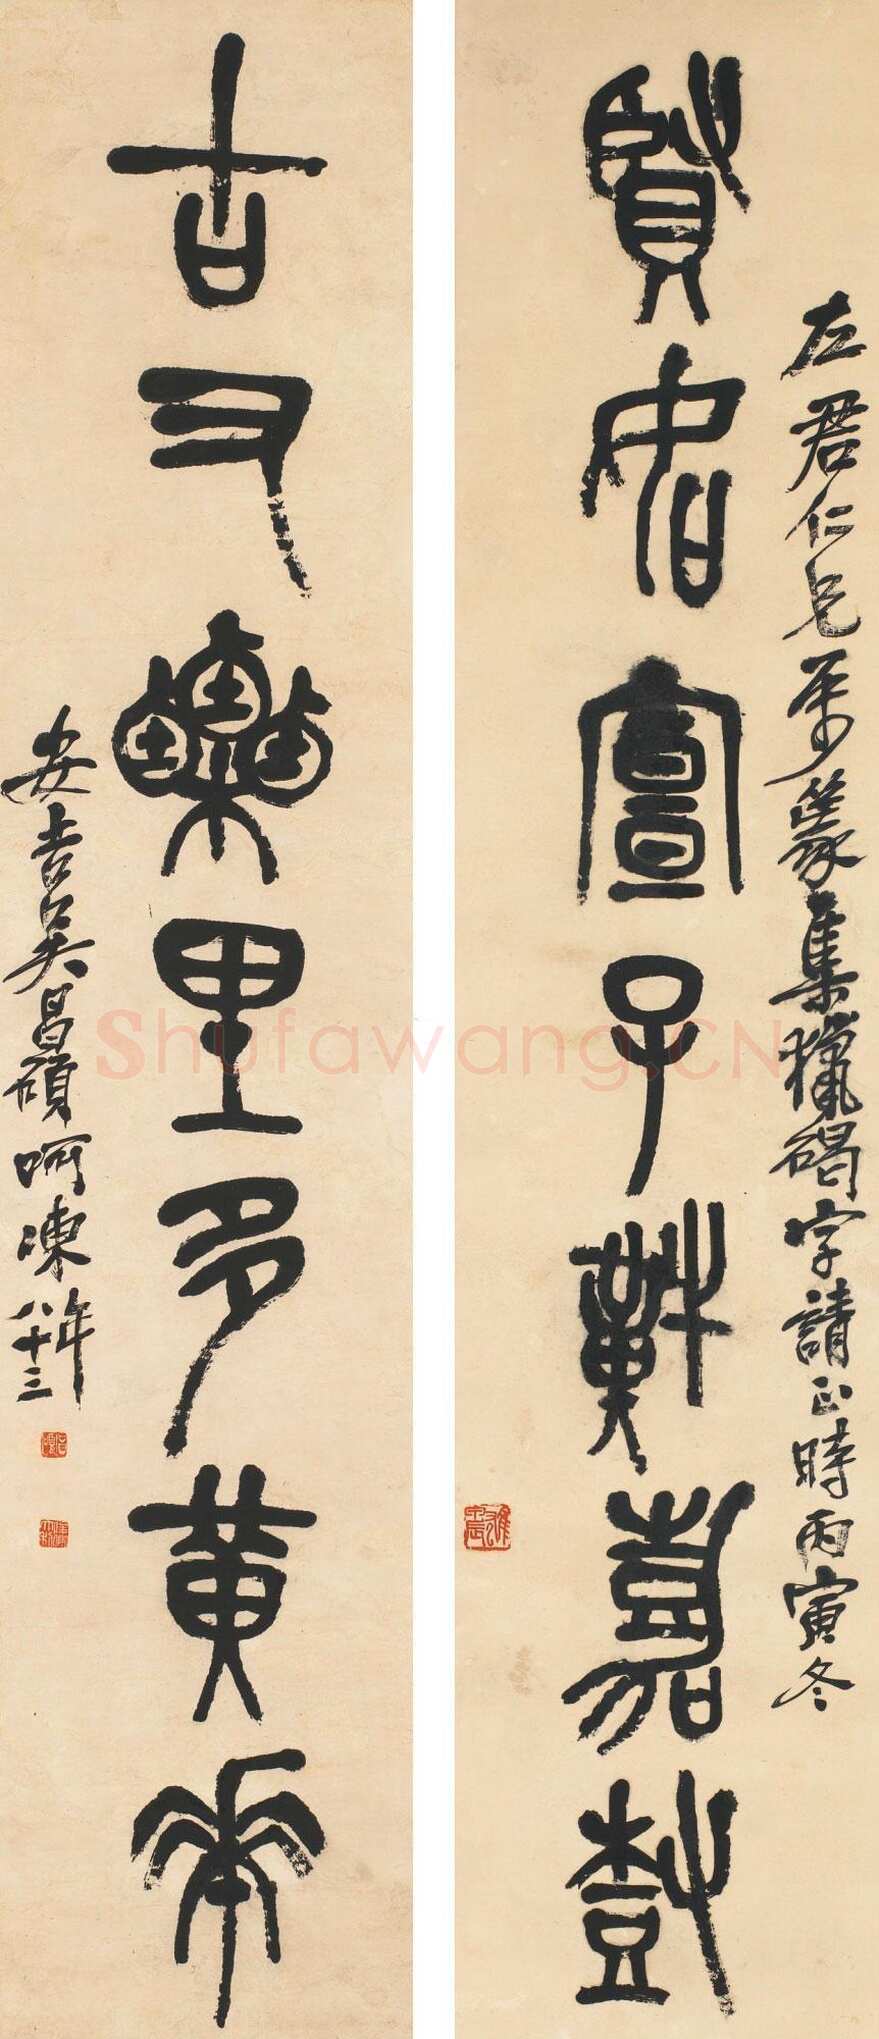 賢宣子嘉尌
左君仁兄屬篆集獵碣字請正時丙寅冬
古又栗里多黃華
安吉吳昌碩呵凍年八十三
Shufawang.CN